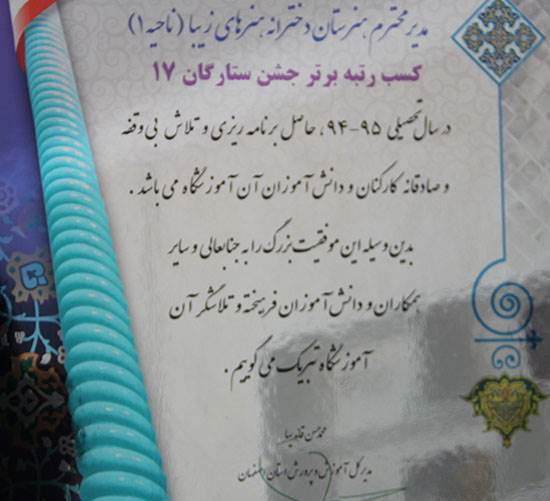 مدیر محترم هنرستان دخترانه هنرهای زیبا (ناحیه ۱)
کسب رتبه برتر جشن ستارگان ۱۷
در سال تحصیلی ۹۵-۹۴، حاصل برنامه ریزی و تلاش بی وقفه
و صادقانه کارکنان و دانش آموزان آن آموزشگاه می باشد.
بدین وسیله این موفقیت بزرگ را به جنابعالی و سایر
همکاران و دانش آموزان فرهیخته و تلاشگر آن
آموزشگاه تبریک می گوییم.
محمدحسن قائدیها
مدیرکل آموزش و پرورش استان اصفهان